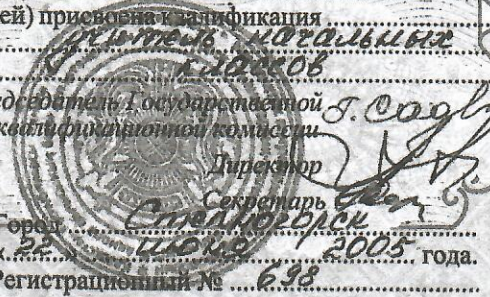 ей) присвоена квалификация
учитель начальных
классов
едседатель Государственной
квалификационной комиссии
Директор
Секретарь
Город Степногорск
« 22 » июня 2005 года.
Регистрационный № 698